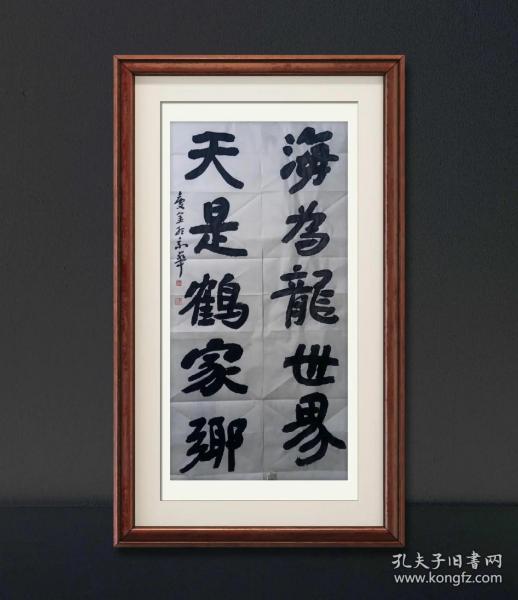 海為龍世界
天是鶴家鄉
孔夫子旧書网
www.kongfz.com